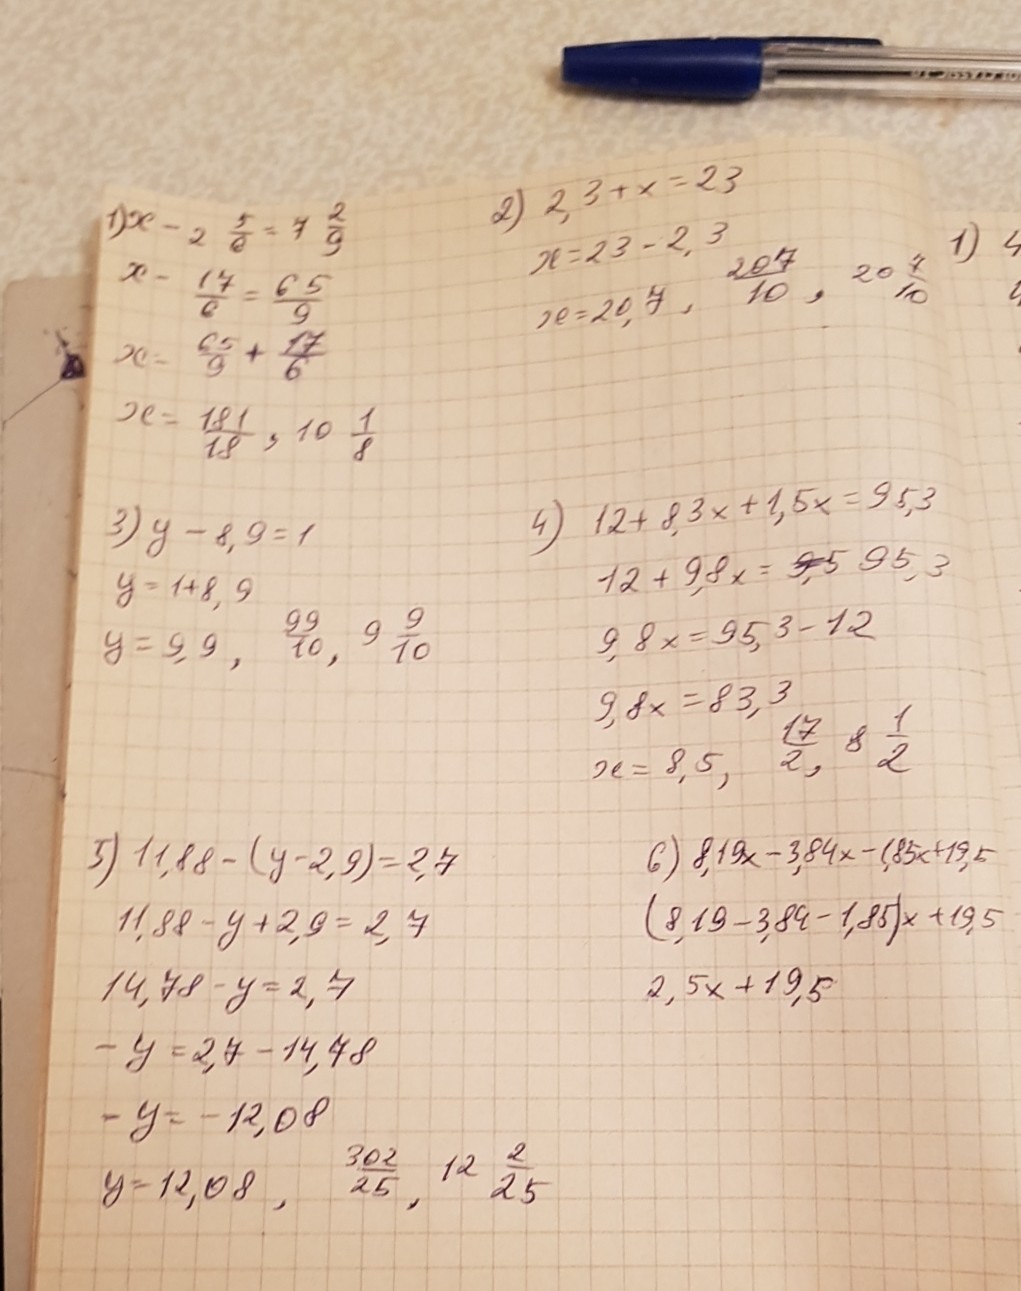 1) x - 2 5/6 = 7 2/9
x - 17/6 = 65/9
x = 65/9 + 17/6
x = 181/18, 10 1/8
2) 2,3 + x = 23
x = 23 - 2,3
x = 20,7, 207/10, 20 7/10
3) y - 8,9 = 1
y = 1 + 8,9
y = 9,9, 99/10, 9 9/10
4) 12 + 8,3x + 1,5x = 95,3
12 + 9,8x = 95,3
9,8x = 95,3 - 12
9,8x = 83,3
x = 8,5, 17/2, 8 1/2
5) 11,88 - (y - 2,9) = 2,7
11,88 - y + 2,9 = 2,7
14,78 - y = 2,7
- y = 2,7 - 14,78
- y = - 12,08
y = 12,08, 302/25, 12 2/25
6) 8,19x - 3,84x - 1,85x + 19,5
(8,19 - 3,84 - 1,85)x + 19,5
2,5x + 19,5
1) 4